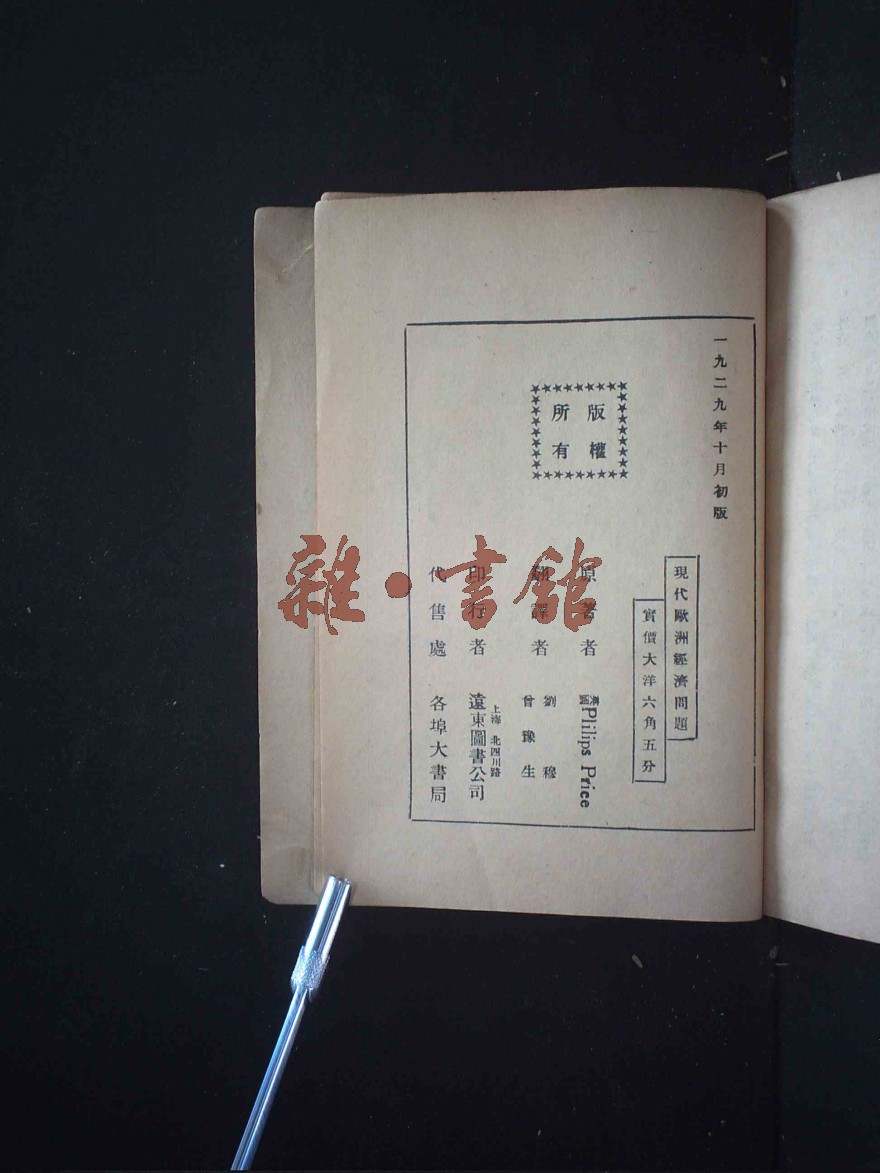 一九二九年十月初版
現代歐洲經濟問題
實價大洋六角五分
版權
所有
原著者 英國Philips Price
翻譯者 劉穆
曾豫生
印行者 上海 北四川路
遠東圖書公司
代售處 各埠大書局
雜·書館